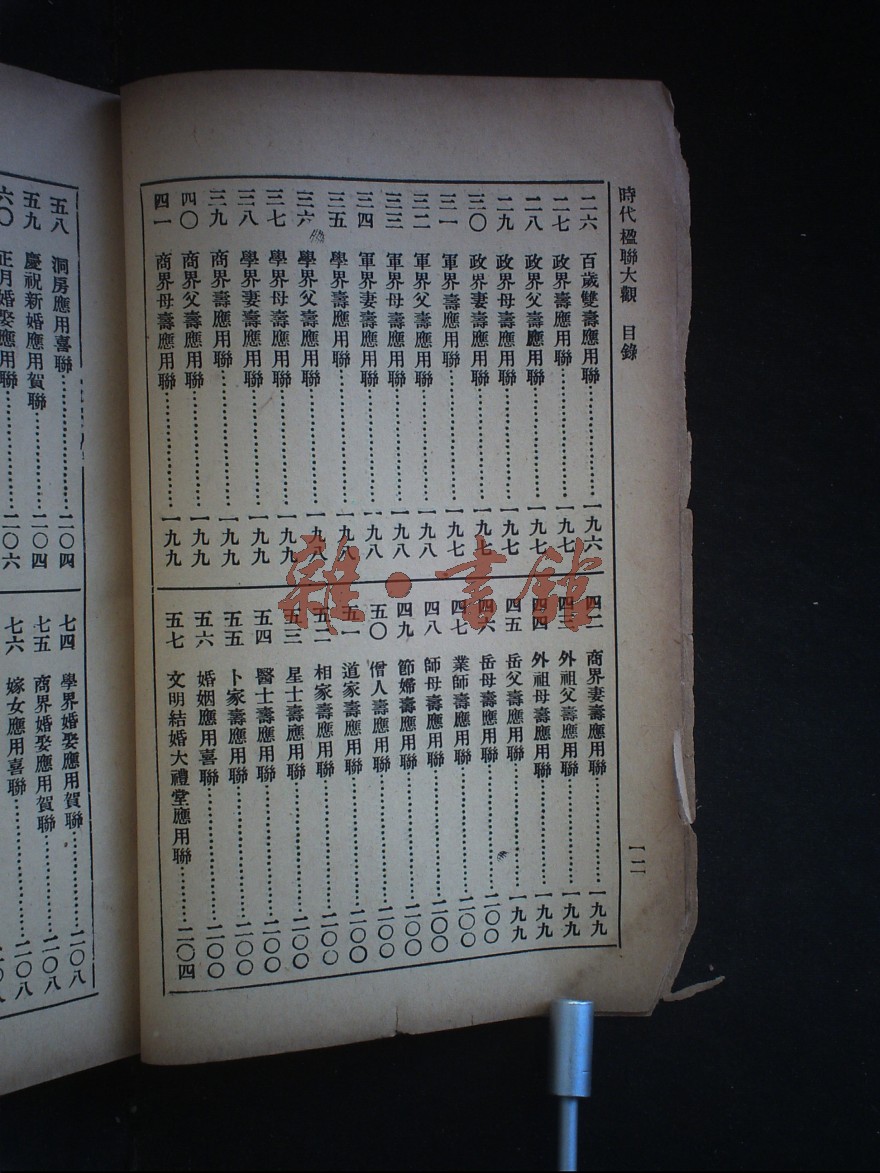 時代楹聯大觀 目錄
一二
二六 百歲雙壽應用聯………一九六
二七 政界壽應用聯………一九七
二八 政界父壽應用聯………一九七
二九 政界母壽應用聯………一九七
三〇 政界妻壽應用聯………一九七
三一 軍界壽應用聯………一九七
三二 軍界父壽應用聯………一九八
三三 軍界母壽應用聯………一九八
三四 軍界妻壽應用聯………一九八
三五 學界壽應用聯………一九八
三六 學界父壽應用聯………一九八
三七 學界母壽應用聯………一九九
三八 學界妻壽應用聯………一九九
三九 商界壽應用聯………一九九
四〇 商界父壽應用聯………一九九
四一 商界母壽應用聯………一九九
四二 商界妻壽應用聯………一九九
四三 外祖父壽應用聯………一九九
四四 外祖母壽應用聯………一九九
四五 岳父壽應用聯………一九九
四六 岳母壽應用聯………二〇〇
四七 業師壽應用聯………二〇〇
四八 師母壽應用聯………二〇〇
四九 節婦壽應用聯………二〇〇
五〇 僧人壽應用聯………二〇〇
五一 道家壽應用聯………二〇〇
五二 相家壽應用聯………二〇〇
五三 星士壽應用聯………二〇〇
五四 醫士壽應用聯………二〇〇
五五 卜家壽應用聯………二〇〇
五六 婚姻應用喜聯………二〇〇
五七 文明結婚大禮堂應用聯………二〇四
五八 洞房應用喜聯………二〇四
五九 慶祝新婚應用賀聯………二〇四
六〇 正月婚娶應用聯………二〇六
七四 學界婚娶應用賀聯………二〇八
七五 商界婚娶應用賀聯………二〇八
七六 嫁女應用喜聯………二〇八
雜·書館